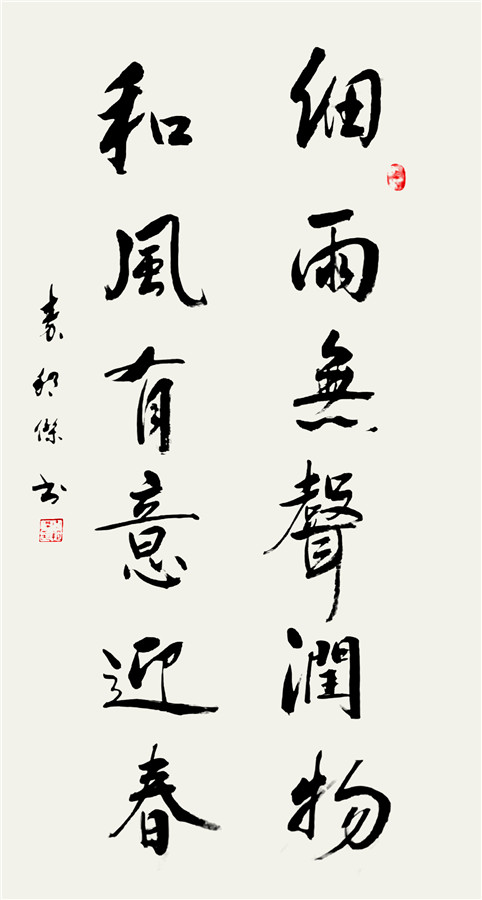 細雨無聲潤物
和風有意迎春
袁邦傑书